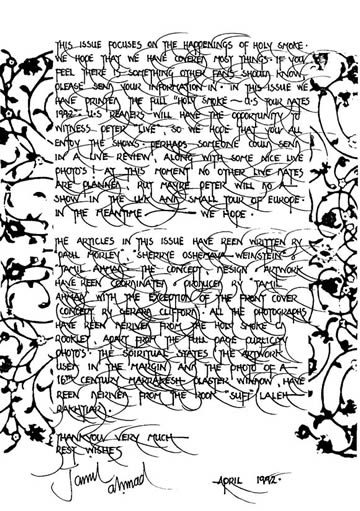 THIS ISSUE FOCUSES ON THE HAPPENINGS OF HOLY SMOKE.
WE HOPE THAT WE HAVE COVERED MOST THINGS. IF YOU
FEEL THERE IS SOMETHING OTHER FANS SHOULD KNOW,
PLEASE SEND YOUR INFORMATION IN. IN THIS ISSUE WE
HAVE PRINTED THE FULL "HOLY SMOKE - U.S TOUR DATES
1992". U.S READERS WILL HAVE THE OPPORTUNITY TO
WITNESS PETER "LIVE", SO WE HOPE THAT YOU ALL
ENJOY THE SHOWS. PERHAPS SOMEONE COULD SEND
IN A LIVE REVIEW, ALONG WITH SOME NICE LIVE
PHOTO'S! AT THIS MOMENT NO OTHER LIVE DATES
ARE PLANNED, BUT MAYBE PETER WILL DO A
SHOW IN THE U.K AND SMALL TOUR OF EUROPE.
IN THE MEANTIME WE HOPE.
THE ARTICLES IN THIS ISSUE HAVE BEEN WRITTEN BY
"PAUL MORLEY", "SHERRYE WEINSTEIN" &
"JAMIL AHMAD". THE CONCEPT, DESIGN & ARTWORK
HAVE BEEN COORDINATED & PRODUCED BY "JAMIL
AHMAD" WITH THE EXCEPTION OF THE FRONT COVER
(CONCEPT BY GERARD CLIFFORD). ALL THE PHOTOGRAPHS
HAVE BEEN DERIVED FROM THE HOLY SMOKE
BOOKLET, APART FROM THE FULL PAGE PUBLICITY
PHOTO'S. THE SPIRITUAL STATES (THE ARTWORK
USED IN THE MARGIN) AND THE PHOTO OF A
16TH CENTURY MARRAKESH PLASTER WINDOW, HAVE
BEEN DERIVED FROM THE BOOK "SUFI" LALEH
BAKHTIAR.
THANKYOU VERY MUCH
BEST WISHES
Jamil ahmad
APRIL 1992.